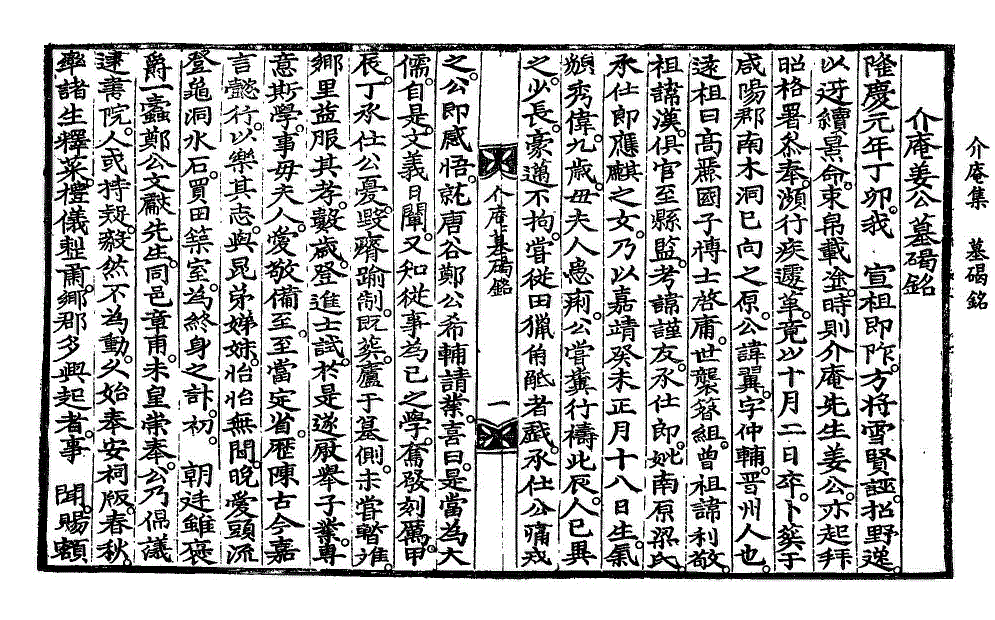 介庵集 墓碣銘
介庵姜公墓碣銘
隆慶元年丁卯我 宣祖即阼方將雪賢誣招野逸
以迓續景命束帛載途時則介庵先生姜公亦起拜
昭格署參奉瀕行疾遽革竟以十月二日卒卜葬于
咸陽郡南木洞巳向之原公諱翼字仲輔晋州人也
遠祖曰高麗國子博士啓庸世襲簪組曾祖諱利敬
祖諱漢俱官至縣監考諱謹友承仕郎妣南原梁氏
承仕郎應麒之女乃以嘉靖癸未正月十八日生氣
貌秀偉九歲毋夫人患痢公嘗糞行禱北辰人已異
之少長豪邁不拘嘗從田獵角觝者戱承仕公痛戒
介庵墓碣銘 一
之公即感悟就唐谷鄭公希輔請業喜曰是當爲大
儒自是文義日闡又和從事爲己之學奮發刻厲甲
辰丁承仕公憂毁瘠踰制既葬廬于墓側未嘗暫離
鄉里益服其孝數歲登進士試於是遂厭舉子業專
意斯學事毋夫人愛敬備至至當定省歷陳古今嘉
言懿行以樂其志與昆弟娣妹怡怡無間晩愛頭流
登龜洞水石買田築室爲終身之計初 朝廷雖褒
爵一蠧鄭公文獻先生同邑章甫未皇崇奉公乃倡議
建書院人或持疑毅然不爲動久始奉安祠版春秋
率諸生釋菜禮儀整肅鄉郡多興起者事 聞賜額